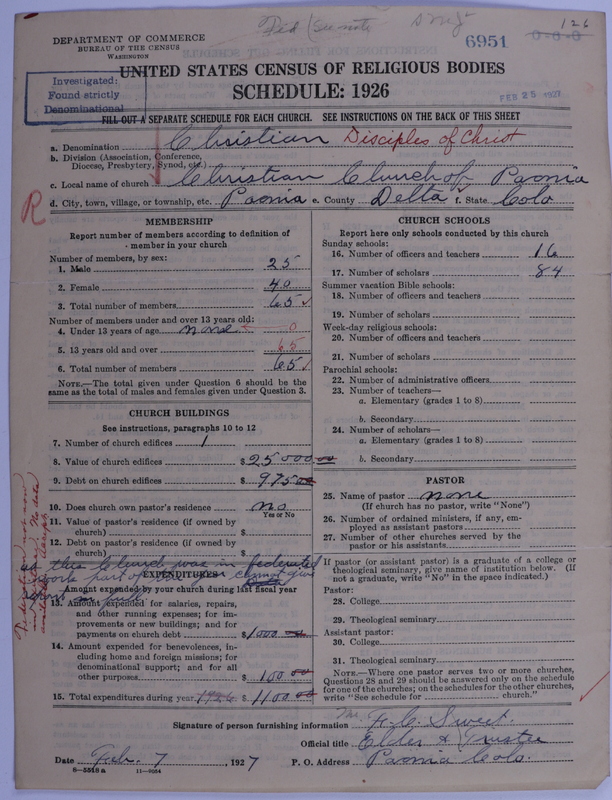 126
Fed
6951
0-8-0
DEPARTMENT OF COMMERCE
BUREAU OF THE CENSUS
WASHINGTON
Investigated:
Found strictly
Denominational
UNITED STATES CENSUS OF RELIGIOUS BODIES
SCHEDULE: 1926
FEB 25 1927
FILL OUT A SEPARATE SCHEDULE FOR EACH CHURCH. SEE INSTRUCTIONS ON THE BACK OF THIS SHEET
a. Denomination Christian Disciples of Christ
b. Division (Association, Conference,
Diocese, Presbytery, Synod, etc.)
c. Local name of church Christian Church of Paonia
R
d. City, town, village, or township, etc. Paonia e. County Delta f. State Colo
MEMBERSHIP
Report number of members according to definition of
member in your church
Number of members, by sex:
1. Male 25
2. Female 40
3. Total number of members 65
Number of members under and over 13 years old:
4. Under 13 years of age none 0
5. 13 years old and over 65
6. Total number of members 65
NOTE.—The total given under Question 6 should be the
same as the total of males and females given under Question 3.
CHURCH BUILDINGS
See instructions, paragraphs 10 to 12
7. Number of church edifices 1
8. Value of church edifices $ 25000 00
9. Debt on church edifices $ 975 00
10. Does church own pastor's residence no
Yes or No
11. Value of pastor's residence (if owned by
church) $
12. Debt on pastor's residence (if owned by
church) $
as this Church was in federated
work part of year cannot give
EXPENDITURES
report in full
Amount expended by your church during last fiscal year
13. Amount expended for salaries, repairs,
and other running expenses; for im-
provements or new buildings; and for
payments on church debt $ 1000
14. Amount expended for benevolences, in-
cluding home and foreign missions; for
denominational support; and for all
other purposes $ 100 00
15. Total expenditures during year 1926 $ 1100 00
CHURCH SCHOOLS
Report here only schools conducted by this church
Sunday schools:
16. Number of officers and teachers 16
17. Number of scholars 84
Summer vacation Bible schools:
18. Number of officers and teachers
19. Number of scholars
Week-day religious schools:
20. Number of officers and teachers
21. Number of scholars
Parochial schools:
22. Number of administrative officers
23. Number of teachers—
a. Elementary (grades 1 to 8)
b. Secondary
24. Number of scholars—
a. Elementary (grades 1 to 8)
b. Secondary
PASTOR
25. Name of pastor none
(If church has no pastor, write "None")
26. Number of ordained ministers, if any, em-
ployed as assistant pastors
27. Number of other churches served by the
pastor or his assistants
If pastor (or assistant pastor) is a graduate of a college or
theological seminary, give name of institution below. (If
not a graduate, write "No" in the space indicated.)
Pastor:
28. College
29. Theological seminary
Assistant pastor:
30. College
31. Theological seminary
NOTE.—Where one pastor serves two or more churches,
Questions 28 and 29 should be answered only on the schedule
for one of the churches; on the schedules for the other churches,
write "See schedule for church."
Signature of person furnishing information Mr F. C. Sweet
Official title Elder & Trustee
Date Feb. 7, 1927 P. O. Address Paonia Colo.
8—5518a 11—9054